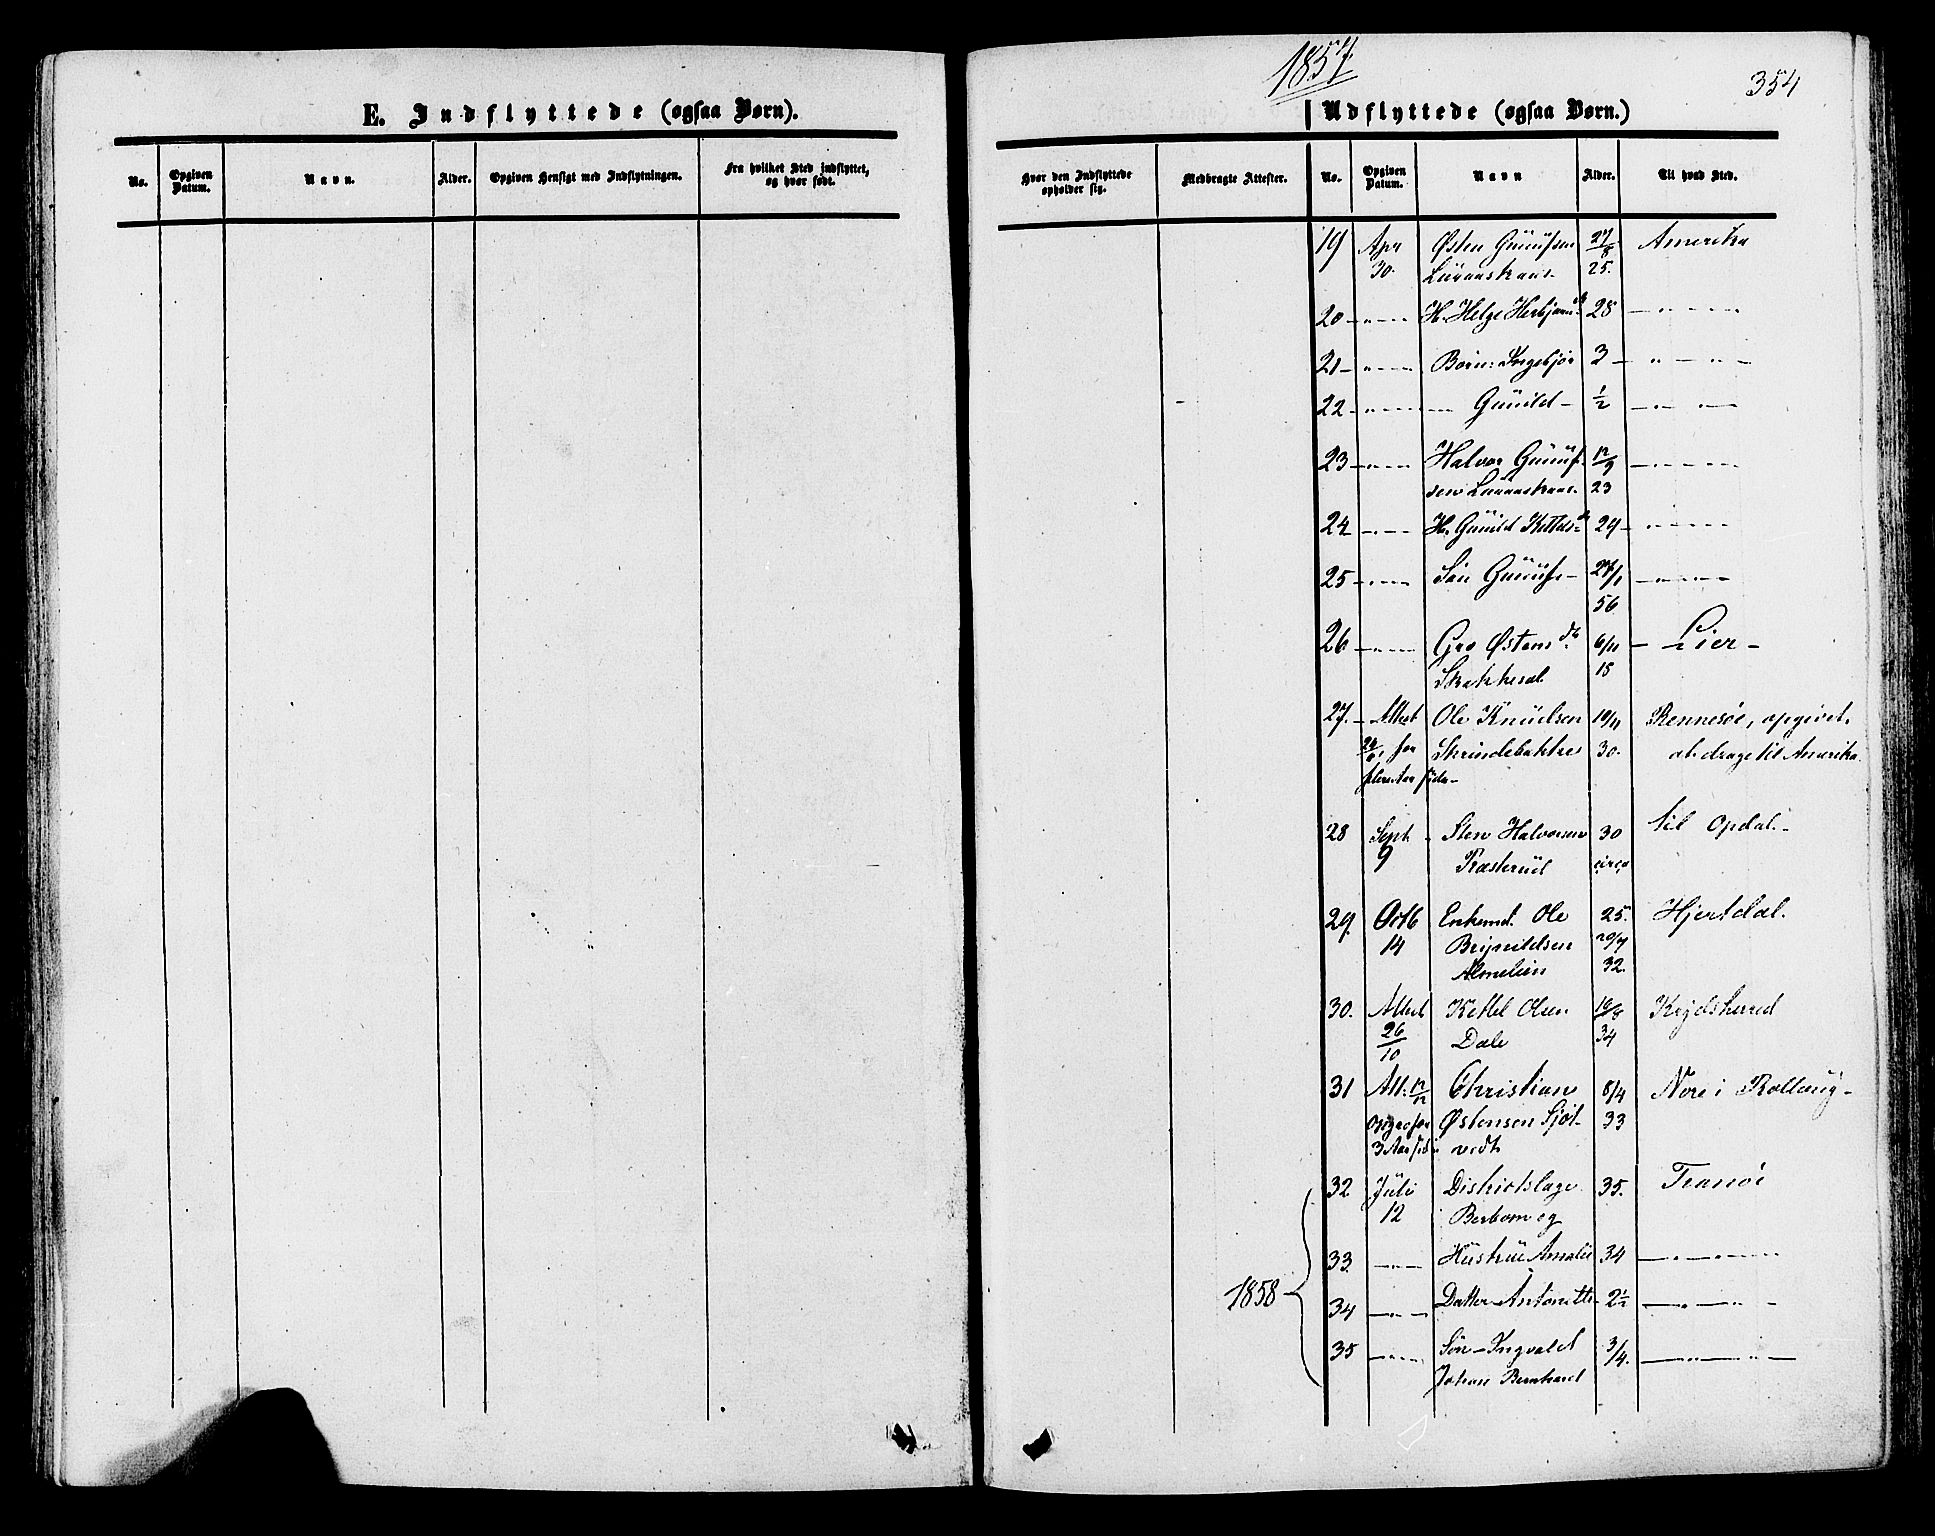 1857.
354
E. Indflyttede (ogsaa Børn).
Udflyttede (ogsaa Børn.)
No.
Opgiven Datum.
Navn.
Alder.
Opgiven Hensigt med Indflytningen.
Fra hvilket Sted indflyttet, og hvor født.
Hvor den Indflyttede opholder sig.
Medbragte Attester.
No.
Opgiven Datum.
Navn
Alder.
Til hvad Sted.
19 Apr Østen Gunnufsen 27/8 Amerika
30. 25.
20 -"-"- H. Helge Herbjørnsd. 28 -"-"-
21 -"-"- Børn: Ingebjør 3 - " - " -
22 -"-"- Gunild - 1/2 -"-"-
23 -"-"- Halvor Gunnuf- 12/9 -"-"-
sen 23
24 -"-"- H. Gunild Kettelsd. 29 - "-"-
25 -"-"- Søn Gunnuf - -"-"-
56
26 -"-"- Gro Østensd. 6/11 - Lier -
15
27. - Attest Ole Knudsen 19/11 Rennesøe, opgivet,
for Skrindebakke 30. at drage til Amerika
flere Aar siden -
28 Sept. - Sten Halvorsen 30 til Opdal. -
9 circa
29. Octb Enkemd. Ole 25. Hjertdal.
14 Brynildsen 20/7
32.
30. Attest Kettel Olsen 18/8 Krydsherred
26/10 Dale 34
31 Att: 12/12 Christian 8/4 Nore i Rollaug -
Østensen Sjøt- 33
3 Aar sid. vedt
32 Juli Districtslæge 35. Tranøe
12 og
33. -"-"- Hustrue Amalie 34 -"-"-
1858
34 -"-"- Datter Antonette 2 1/2 -"-"-
35 -"-"- Søn - Ingvald 3/4. -"-"-
Johan Bernhard